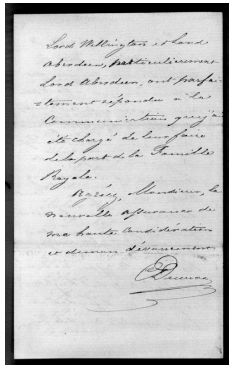 Lord Wellington et Lord
Aberdeen, particulièrement
Lord Aberdeen, ont parfai-
tement répondu à la
Communication que j'ai
été chargé de leur faire
de la part de la Famille
Royale.
Agréez, Monsieur, la
nouvelle assurance de
ma haute considération
et de mon dévouement